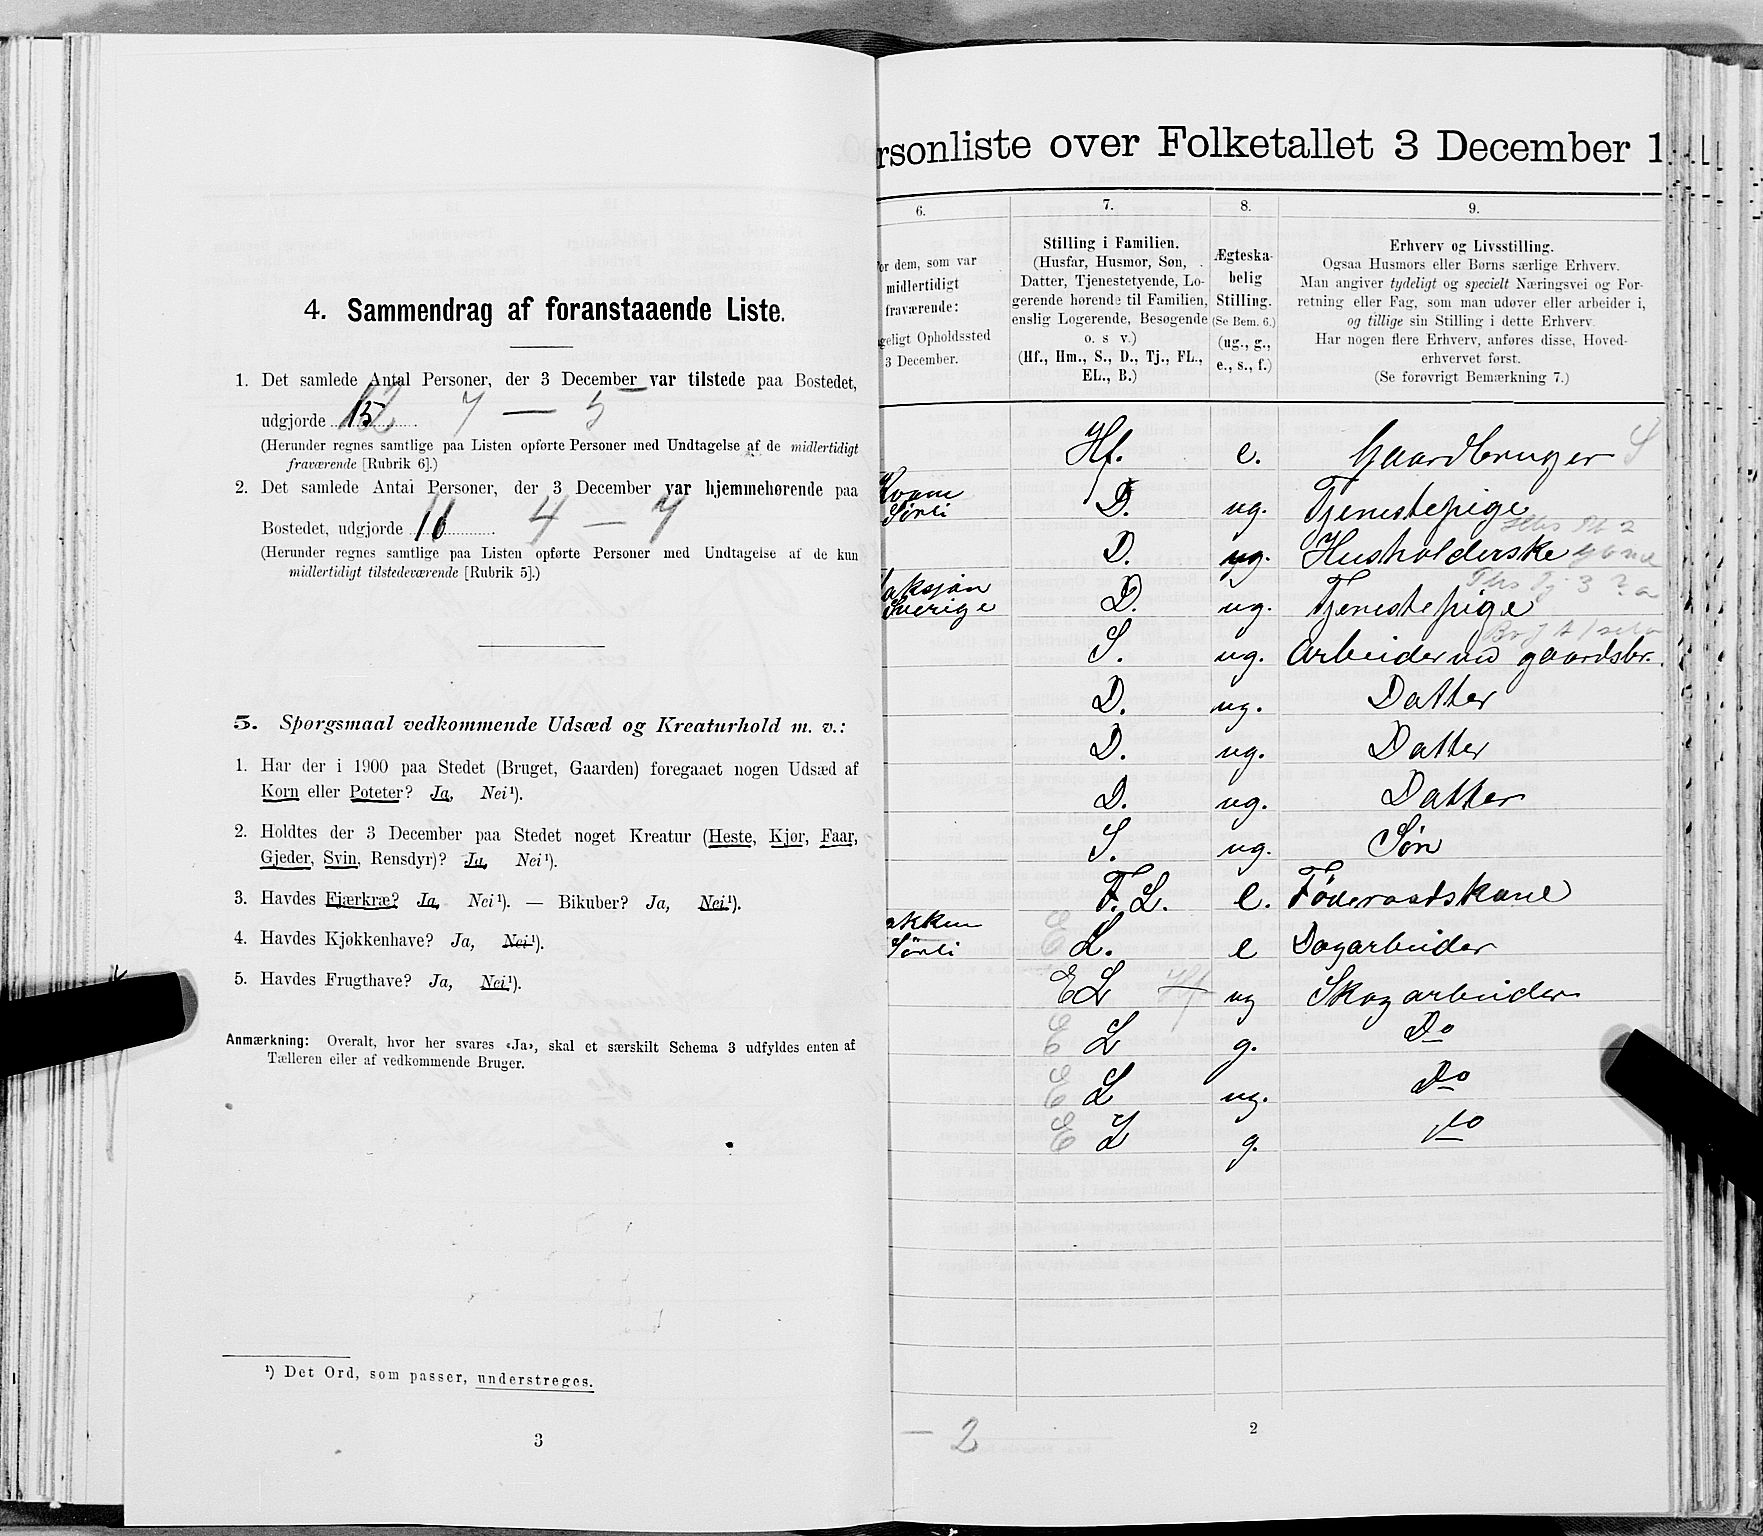 4. Sammendrag af foranstaaende Liste.
1. Det samlede Antal Personer, der 3 December var tilstede paa Bostedet,
udgjorde 15 7 — 5
(Herunder regnes samtlige paa Listen opførte Personer med Undtagelse af de midlertidigt
fraværende [Rubrik 6].)
2. Det samlede Antal Personer, der 3 December var hjemmehørende paa
Bostedet, udgjorde 11 4 — 7
(Herunder regnes samtlige paa Listen opførte Personer med Undtagelse af de kun
midlertidigt tilstedeværende [Rubrik 5].)
5. Spørgsmaal vedkommende Udsæd og Kreaturhold m. v.:
1. Har der i 1900 paa Stedet (Bruget, Gaarden) foregaaet nogen Udsæd af
Korn eller Poteter? Ja, Nei¹).
2. Holdtes der 3 December paa Stedet noget Kreatur (Heste, Kjør, Faar,
Gjeder, Svin, Rensdyr)? Ja, Nei¹).
3. Havdes Fjærkræ? Ja, Nei¹). — Bikuber? Ja, Nei¹).
4. Havdes Kjøkkenhave? Ja, Nei¹).
5. Havdes Frugthave? Ja, Nei¹).
Anmærkning: Overalt, hvor her svares «Ja», skal et særskilt Schema 3 udfyldes enten af
Tælleren eller af vedkommende Bruger.
¹) Det Ord, som passer, understreges.
3
rsonliste over Folketallet 3 December 1
6. 7. 8. 9.
or dem, som var
midlertidigt
fraværende:
geligt Opholdssted
3 December.
Stilling i Familien.
(Husfar, Husmor, Søn,
Datter, Tjenestetyende, Lo-
gerende hørende til Familien,
enslig Logerende, Besøgende
o. s v.)
(Hf., Hm., S., D., Tj., FL.,
EL., B.)
Ægteska-
belig
Stilling.
(Se Bem. 6.)
(ug., g.,
e., s., f.)
Erhverv og Livsstilling.
Ogsaa Husmors eller Børns særlige Erhverv.
Man angiver tydeligt og specielt Næringsvei og For-
retning eller Fag, som man udøver eller arbeider i,
og tillige sin Stilling i dette Erhverv.
Har nogen flere Erhverv, anføres disse, Hoved-
erhvervet først.
(Se forøvrigt Bemærkning 7.)
Hf. e. Gaardbruger S
Kvam
Sørli D. ug. Tjenestepige
D. ug. Husholderske
aksjøn
Sverige D. ug. Tjenestepige
S. ug. Arbeider ved gaardsbr.
D. ug. Datter
D. ug. Datter
D. ug. Datter
S. ug. Søn
F.L. e. Føderaadskone
akken
Sørli E L. e Dagarbeider
EL ug Skogarbeider
E L g. Do
E L ug. Do
E L g. do
— 2
2